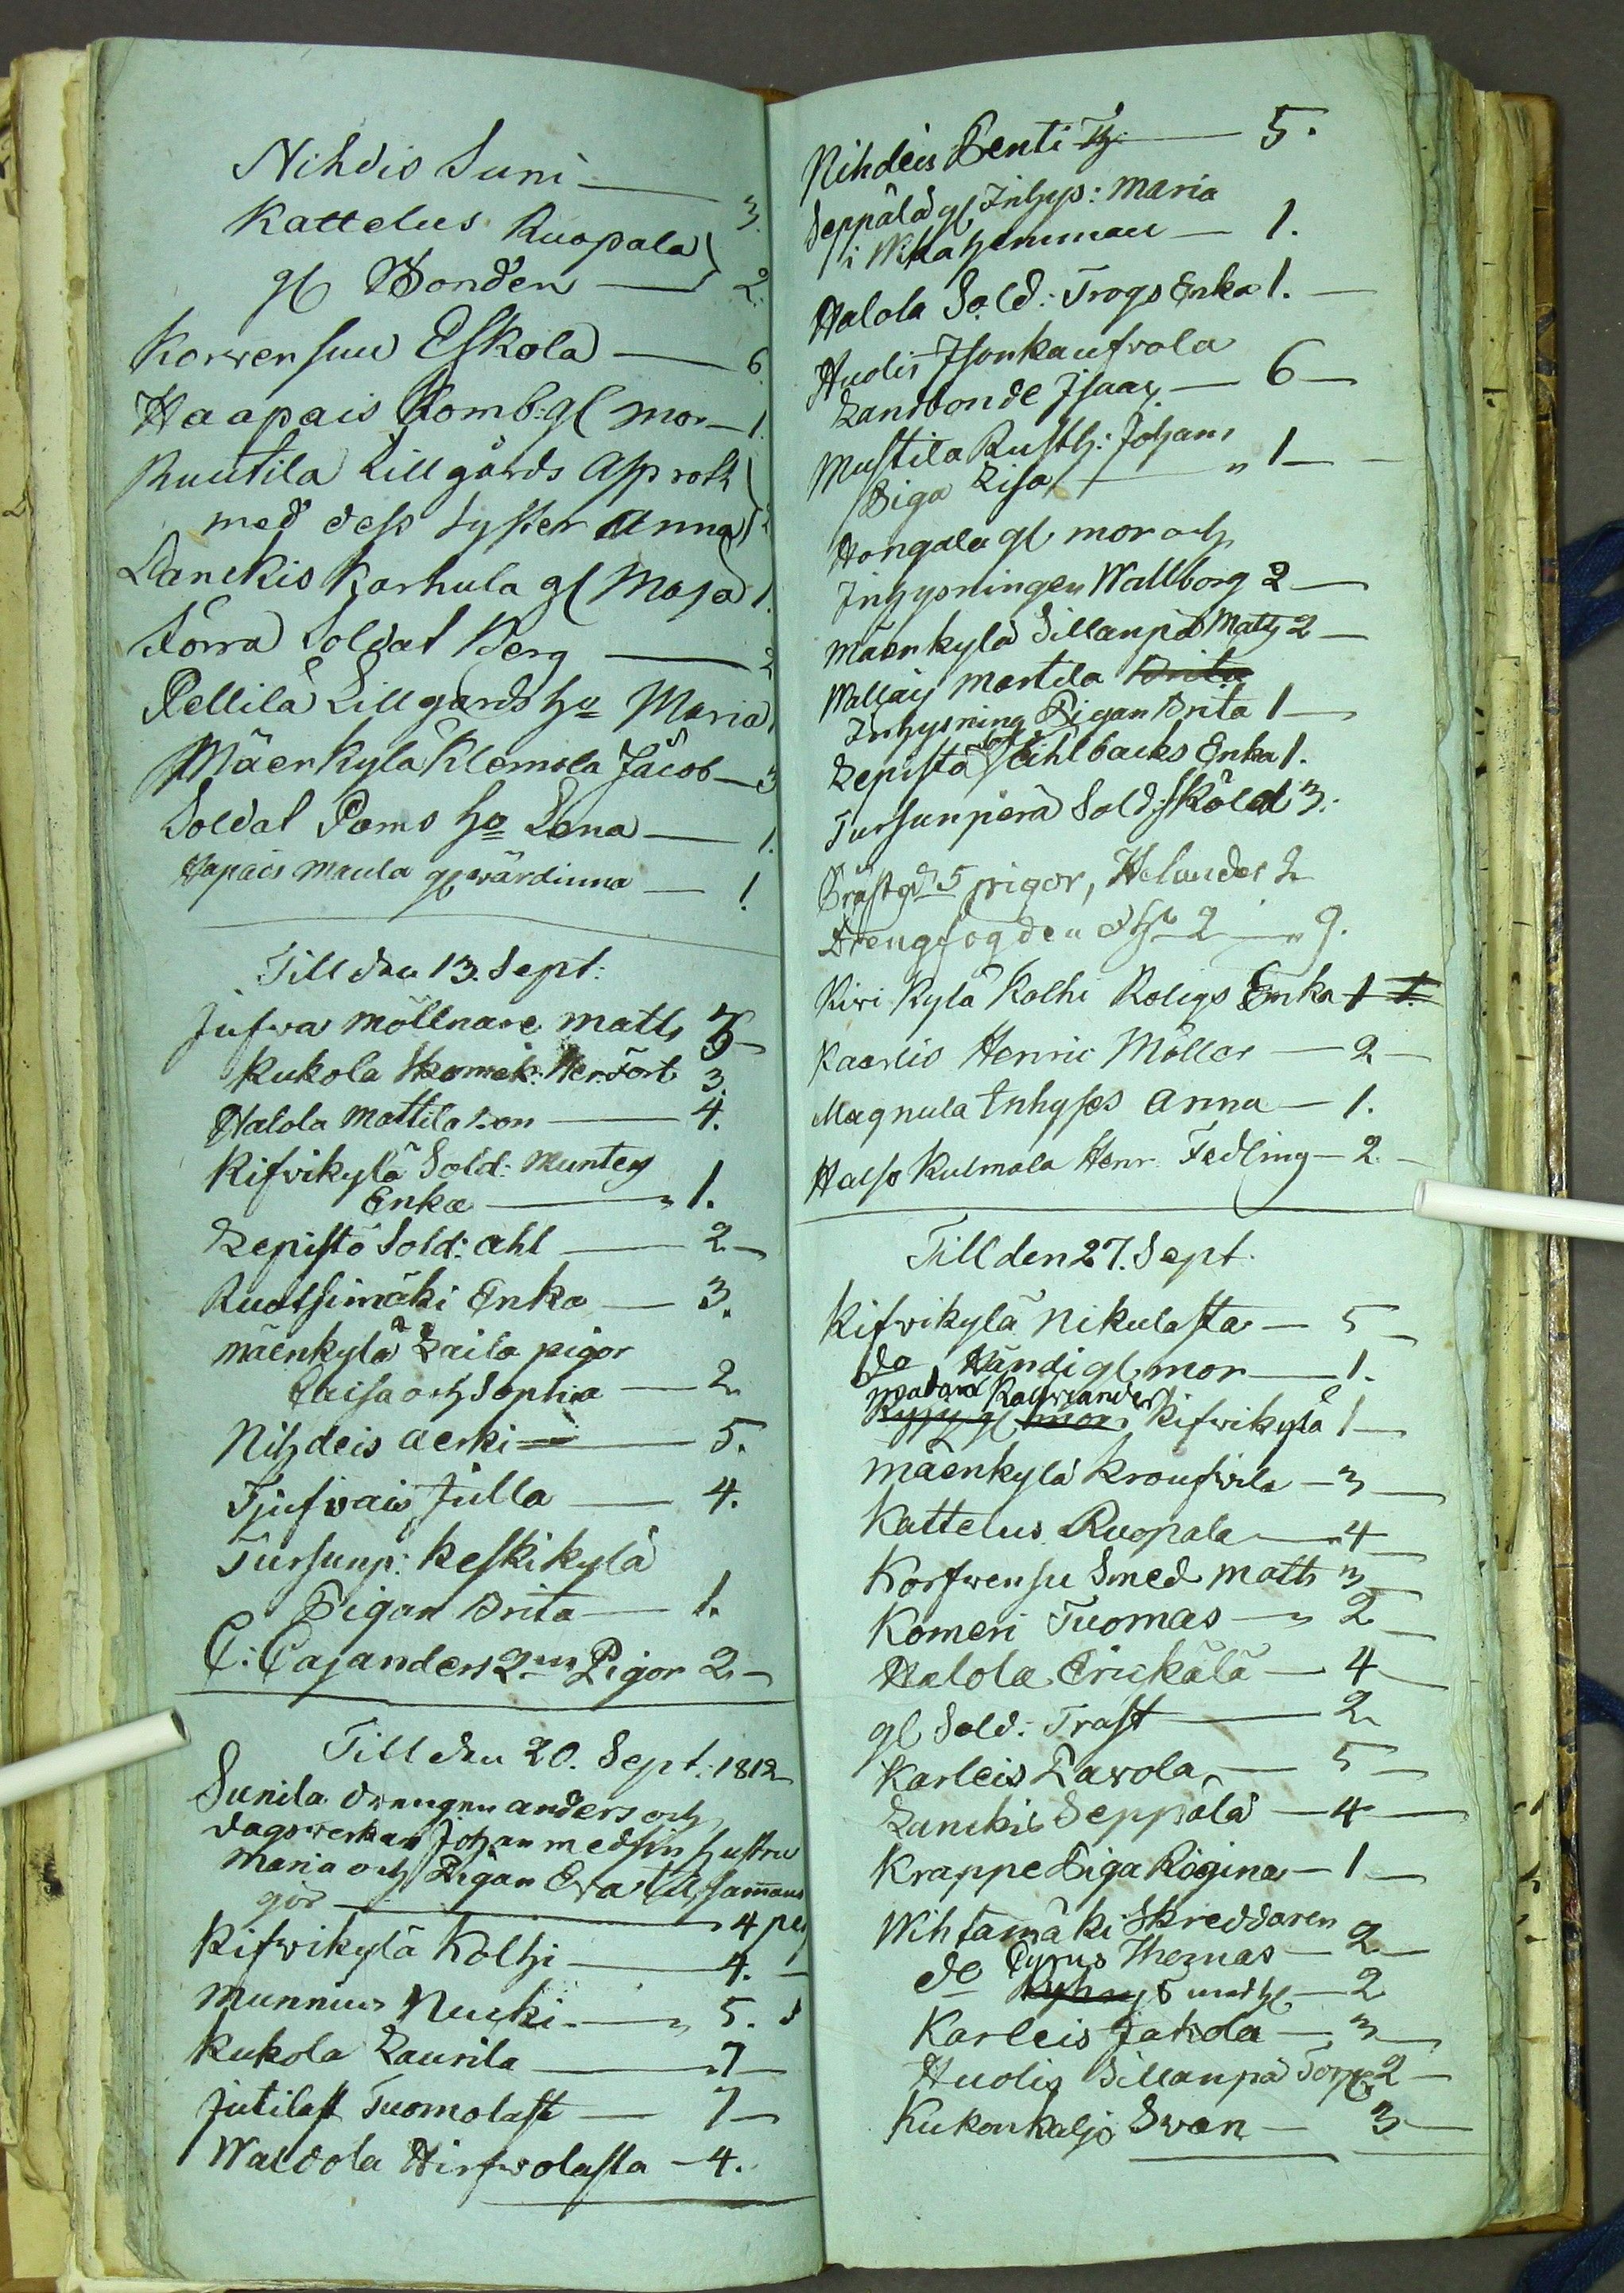 Nihdis Suni — 3.
Kattelus Ruopala
gl Bonden — 2.
Korvensuu Eskola — 6.
Haapais Komb: gl mor — 1.
Ruutila Lillgårds Asproth
med dess Syster Anna 2
Lanckis Karhula gl Maja 1.
Sorra Soldat Berg — 2
Pellilä Lillgårds hu Maria 1
Mäenkylä Klemola Jacob — 3
Soldat Poms hu Lena — 1.
Hapais Maula gl wärdinna — 1.
Till den 13. Sept:
Jufva möllnare Matts
Kukola Skomak: 3.
Halola Mattila — 4.
Kifvikylä Sold: Munters
Enka — 1.
Lepistö Sold: Ahl — 2 —
Ruotsimäki Enka — 3.
Mäenkylä Laila pigor
Caisa och Sophia — 2
Nihdeis Aerki — 5.
Tjufvais Julla — 4.
Tursunp: Keskikylä
Pigan Brita — 1.
C: Cajanders 2ne Pigor 2 —
Till den 20. Sept: 1812
Sunila drengen Anders och
dagsverkan Johan med sin hustru
Maria och Pigan Eva tillsammans
gör — 4 per
Kifvikylä Kolhi — 4. —
Munnius Nucki — 5.
Kukola Laurila — 7 —
Jutilast Tuomolast — 7 —
Waldola Hirfvolasta — 4.
Nihdeis Penti — 5.
Seppälä gl Inhys: Maria
i hemman — 1.
Halola Sold: Trogs Enka 1. —
Huolis Isonkaufvola
Landbonde Isaac — 6 —
Mustila Rusth: Johans
Piga Lisa — 1 —
Hongala gl mor och
Inhysningen Wallborg 2 —
Mäenkylä Sillanpä Matts 2 —
Wallais Martila Brita
Inhysning Pigan Brita 1 —
Lepistö Sold Kihlbacks Enka 1.
Tursunperä Sold: Sköld 3.
Prästgd 5 pigor, Helander 2
Drengfogden 2 — 9.
Kivi Kylä Kolhi Roligs Enka 1 1.
Kaerlis Henric Möller — 2 —
Magnula Inhyses Anna — 1.
Halso Kulmala Henr. Fedling — 2. —
Till den 27. Sept.
Kifvikylä Nikulasta — 5 —
do Händi gl mor — 1.
madam
gl mor Kifvikylä 1 —
Mäenkylä Kroufvila — 3 —
Kattelus Ruopala — 4 —
Korfvensu Smed Matts 3 —
Komeri Tuomas — 2 —
Halola Erickälä — 4 —
gl Sold: Trast — 2
Karleis Pavola — 5 —
Lanckis Seppälä — 4 —
Krappe Piga Regina — 1 —
Wihtamäki Skreddaren
Cyrus Thomas — 2 —
do — 2
Karleis Jakola — 3 —
Huolis Sillanpä Torp 2 —
Kukonkaljo Svan — 3 —